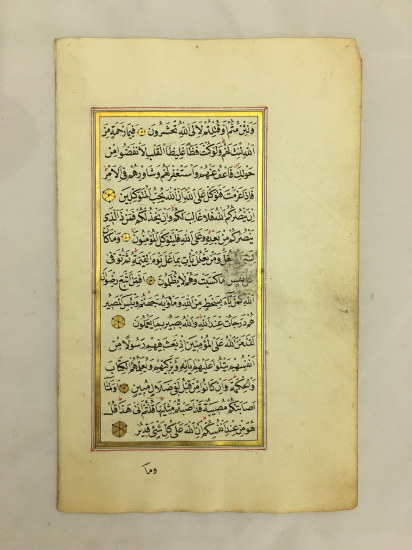 ولئن متم او قتلتم لالى الله تحشرون فبما رحمة من
الله لنت لهم ولو كنت فظا غليظ القلب لانفضوا من
حولك فاعف عنهم واستغفر لهم وشاورهم في الامر
فاذا عزمت فتوكل على الله ان الله يحب المتوكلين
ان ينصركم الله فلا غالب لكم وان يخذلكم فمن ذا الذي
ينصركم من بعده وعلى الله فليتوكل المؤمنون وما كان
لنبي ان يغل ومن يغلل يأت بما غل يوم القيمة ثم توفى
كل نفس ما كسبت وهم لا يظلمون افمن اتبع رضوان
الله كمن باء بسخط من الله ومأويه جهنم وبئس المصير
هم درجات عند الله والله بصير بما يعملون
لقد من الله على المؤمنين اذ بعث فيهم رسولا من
انفسهم يتلوا عليهم اياته ويزكيهم ويعلمهم الكتاب
والحكمة وان كانوا من قبل لفى ضلال مبين اولما
اصابتكم مصيبة قد اصبتم مثليها قلتم انى هذا قل
هو من عند انفسكم ان الله على كل شئ قدير
وما